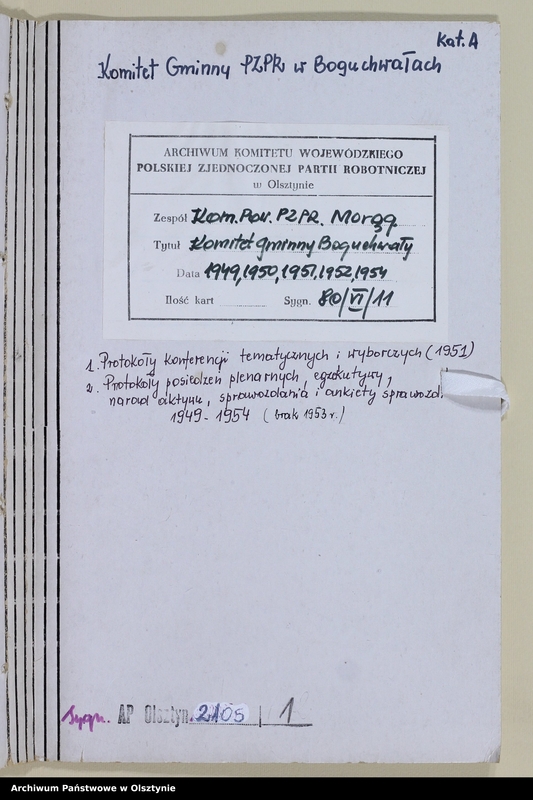 Kat. A
Komitet Gminny PZPR w Boguchwałach
ARCHIWUM KOMITETU WOJEWÓDZKIEGO
POLSKIEJ ZJEDNOCZONEJ PARTII ROBOTNICZEJ
w Olsztynie
Zespół Kom. Pow. PZPR. Morąg
Tytuł Komitet gminny Boguchwały
Data 1949, 1950, 1951, 1952, 1954
Ilość kart Sygn. 80/VI/11
1. Protokoły konferencji tematycznych i wyborczych (1951)
2. Protokoły posiedzeń plenarnych, egzekutywy,
narad aktywu, sprawozdania i ankiety sprawozd.
1949 - 1954 (brak 1953 r.)
Sygn. AP Olsztyn. 2105 | 1
Archiwum Państwowe w Olsztynie